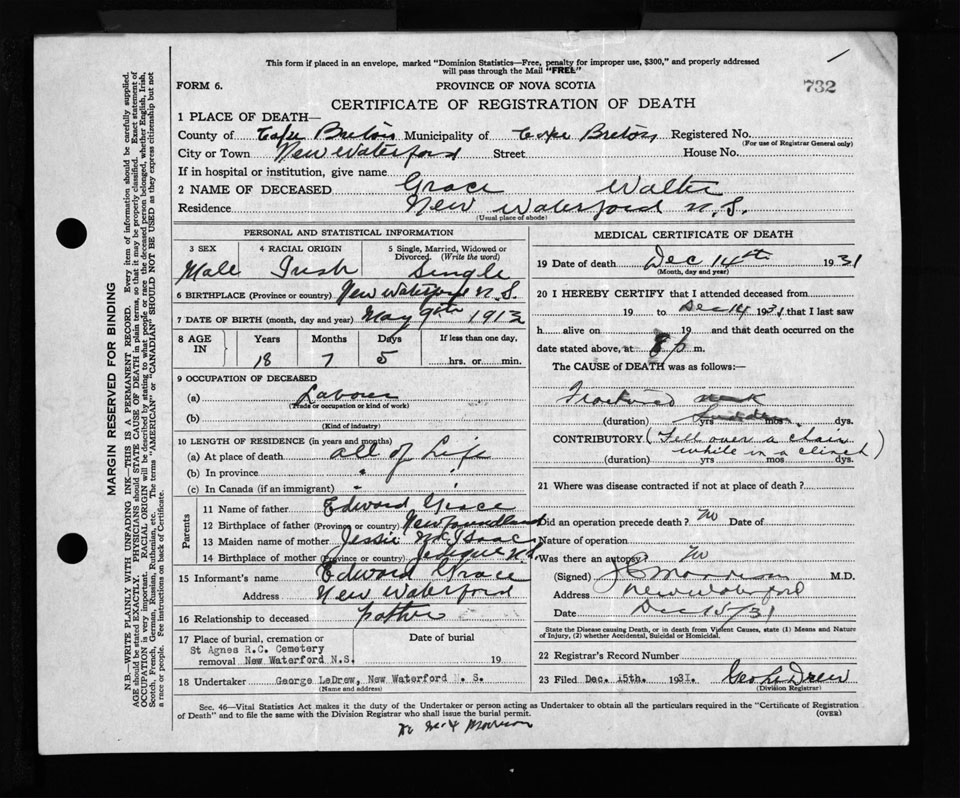 This form if placed in an envelope, marked "Dominion Statistics—Free, penalty for improper use, $300," and properly addressed
will pass through the Mail "FREE"
732
FORM 6. PROVINCE OF NOVA SCOTIA
CERTIFICATE OF REGISTRATION OF DEATH
1 PLACE OF DEATH—
County of Cape Breton Municipality of Cape Breton Registered No.
(For use of Registrar General only)
City or Town New Waterford Street House No.
If in hospital or institution, give name
2 NAME OF DECEASED Grace Walter
Residence New Waterford N.S.
(Usual place of abode)
PERSONAL AND STATISTICAL INFORMATION
3 SEX 4 RACIAL ORIGIN 5 Single, Married, Widowed or
Divorced. (Write the word)
Male Irish Single
6 BIRTHPLACE (Province or country) New Waterford N.S.
7 DATE OF BIRTH (month, day and year) May 9th 1913
8 AGE IN Years Months Days If less than one day,
18 7 5 hrs. or min.
9 OCCUPATION OF DECEASED
(a) Labourer
(Trade or occupation or kind of work)
(b)
(Kind of industry)
10 LENGTH OF RESIDENCE (in years and months)
(a) At place of death all of Life
(b) In province "
(c) In Canada (if an immigrant) "
Parents
11 Name of father Edward Grace
12 Birthplace of father (Province or country) Newfoundland
13 Maiden name of mother Jessie McIsaac
14 Birthplace of mother (Province or country) N.S.
15 Informant's name Edward Grace
Address New Waterford
16 Relationship to deceased father
17 Place of burial, cremation or Date of burial
St Agnes R.C. Cemetery
removal New Waterford N.S. 19
18 Undertaker George LeDrew, New Waterford N. S.
(Name and address)
MEDICAL CERTIFICATE OF DEATH
19 Date of death Dec 14th 1931
(Month, day and year)
20 I HEREBY CERTIFY that I attended deceased from
19 to Dec 14 1931 that I last saw
h alive on 19 and that death occurred on the
date stated above, at 8 p m.
The CAUSE of DEATH was as follows:—
Fractured neck
(duration) yrs mos. dys.
CONTRIBUTORY (Fell over a chair
while in a clinch)
(duration) yrs mos dys.
21 Where was disease contracted if not at place of death?
Did an operation precede death? No Date of
Nature of operation
Was there an autopsy? No
(Signed) Morrison M.D.
Address New Waterford
Date Dec 15/31
State the Disease causing Death, or in death from Violent Causes, state (1) Means and Nature
of Injury, (2) whether Accidental, Suicidal or Homicidal.
22 Registrar's Record Number
23 Filed Dec. 15th. 1931. Geo LeDrew
(Division Registrar)
Sec. 46—Vital Statistics Act makes it the duty of the Undertaker or person acting as Undertaker to obtain all the particulars required in the "Certificate of Registration
of Death" and to file the same with the Division Registrar who shall issue the burial permit. (OVER)
Morrison
MARGIN RESERVED FOR BINDING
N.B.—WRITE PLAINLY WITH UNFADING INK—THIS IS A PERMANENT RECORD. Every item of information should be carefully supplied.
AGE should be stated EXACTLY. PHYSICIANS should STATE CAUSE OF DEATH in plain terms, so that it may be properly classified. Exact statement of
OCCUPATION is very important. RACIAL ORIGIN will be described by stating to what people or race the deceased person belonged, whether English, Irish,
Scotch, French, German, Russian, Ruthenian, etc. The terms "AMERICAN" or "CANADIAN" SHOULD NOT BE USED as they express citizenship but not
a race or people. Fee instructions on back of Certificate.